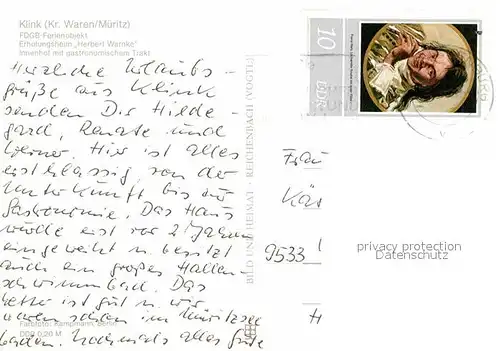 Klink (Kr. Waren/Müritz)
FDGB-Ferienobjekt
Erholungsheim „Herbert Warnke“
Innenhof mit gastronomischem Trakt
Herzliche Urlaubs-
grüße aus Klink
senden Dir Hilde-
gard, Renate und
Werner. Hier ist alles
erstklassig, von der
Unterkunft bis zur
Gastronomie. Das Haus
wurde erst vor 2 Jahren
eingeweiht u. besitzt
auch ein großes Hallen-
schwimmbad. Das
Wetter ist gut u. wir
waren schon im Müritzsee
baden. Nochmals alles Gute
Farbfoto: Kampmann, Berlin
DDR 0,20 M
BILD UND HEIMAT · REICHENBACH (VOGTL)
10
DDR
Frau
Kär
9533
H
privacy protection
Datenschutz